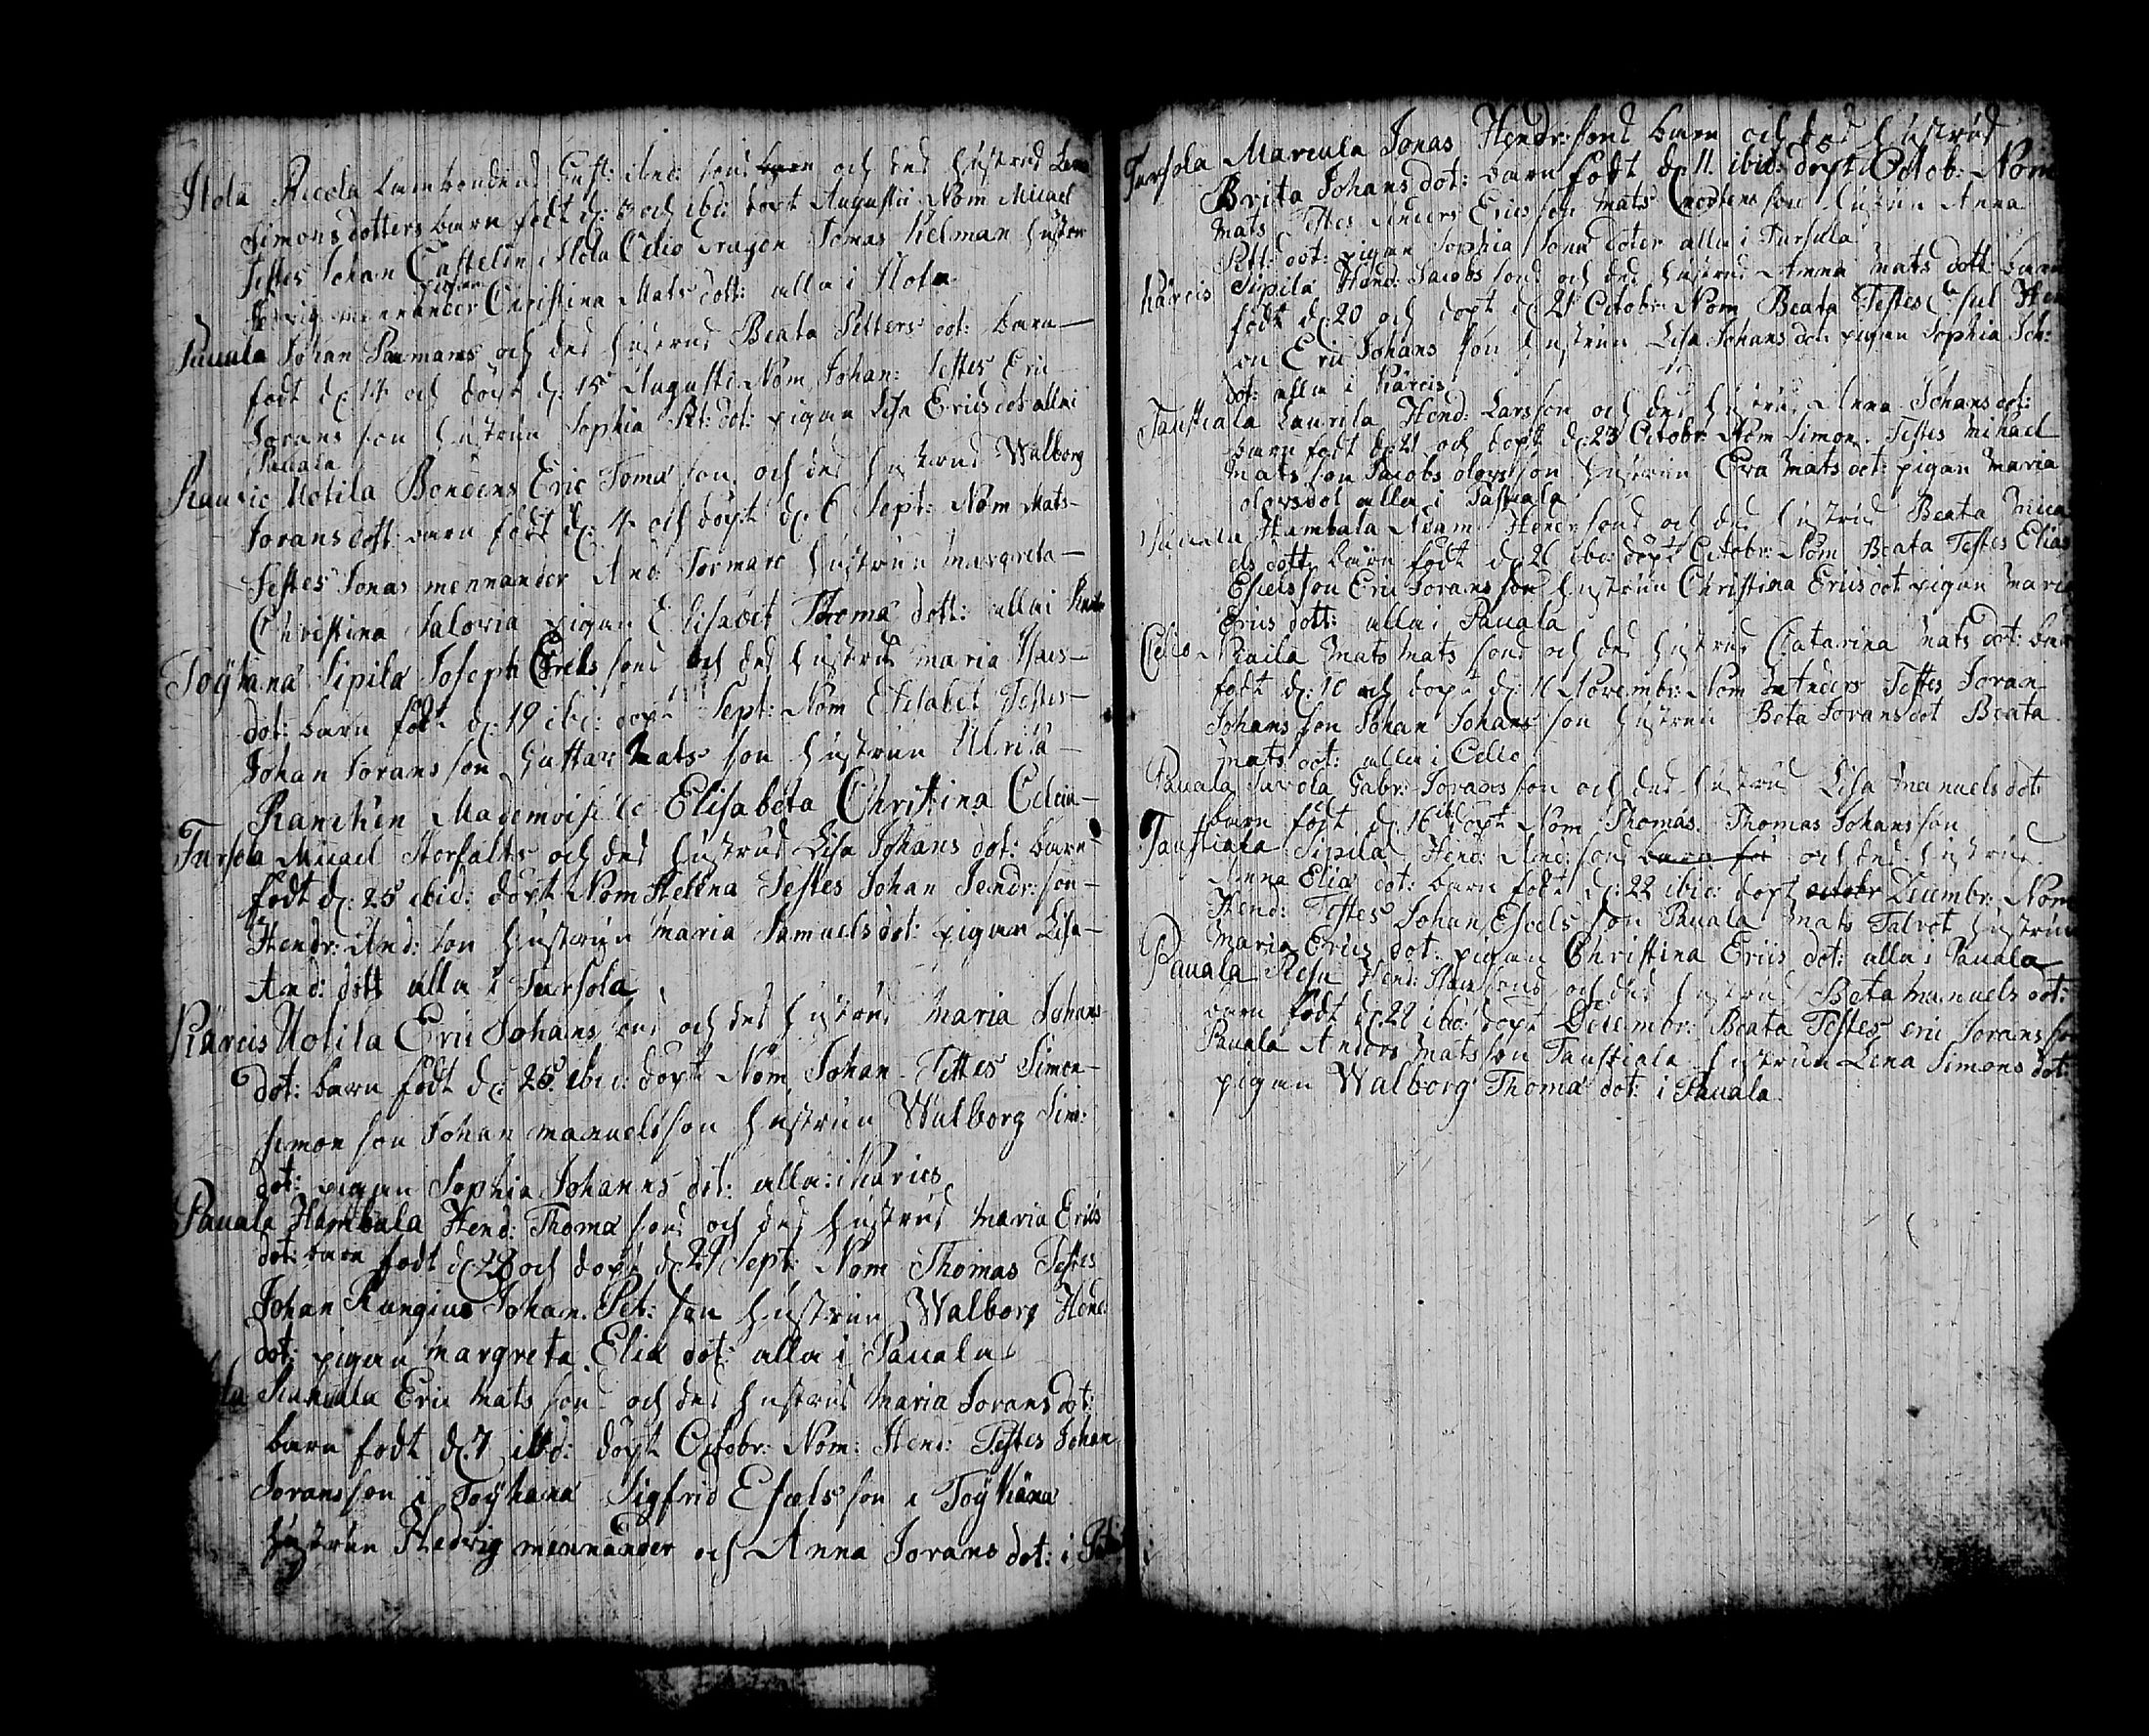 Ilola Ricola Lambondens Gust: And: sons barn och des hustrus Lena
Simons dotters barn födt d: 5 och ibid: döpt Augustii Nom Micael
Testes Johan Castelin Ilola Celio Dragon Tomas Kielman hustru
pigan
Hedvig mennander Christina Mats dott: alla i Ilola
Pauala Johan Paumans och des hustrus Beata Petters dot: barn
födt d: 14 och döpt d: 15 Augusti Nom Johan: Testes Eric
Jorans son hustrun Sophia Pet: dot: pigan Lisa Erics dot alla i
Pauala
Rautio Uotila Bondens Eric Toma son och des hustrus Walborg
Jorans dott: barn födt d: 4 och döpt d: 6 Sept: Nom Mats
Testes Jonas mennander And: Tormare hustrun margreta
Christina Salovia pigan Elisabet Thoma dott: alla i
Töÿhänä Sipilä Joseph Erics sons och des hustrus maria
dot: barn födt d: 19 ibid: döpt Sept: Nom Elisabet Testes
Johan Jorans son Gustav Mats son hustrun Ulrica
Ranchen Mademoiselle Elisabeta Christina
Tursola Micael Storfalts och des hustrus Lisa Johans dot: barn
födt d: 25 ibid: döpt Nom Helena Testes Johan Hendr: son
Hendr: And: son hustrun maria Samuels dot: pigan Lisa
And: dott alla i Tursola
Kärcis Uotila Eric Johans sons och des hustrus maria Johans
dot: barn födt d: 25 ibid: döpt Nom Johan Testes Simon
simon son Johan manuels son hustrun Walborg Sim:
dot: pigan Sophia Johans dot: alla: i Kärcis
Pauala Hambala Hend: Thoma sons och des hustrus maria Erics
dot: barn födt d: 28 och döpt d: 29 Sept: Nom Thomas Testes
Johan Rungius Johan Pet: son hustrun Walborg Hend:
dot: pigan margreta Elia dot: alla i Pauala
Eric mats son och des hustrus maria Jorans dot:
barn födt d: 7 ibid: döpt Octobr: Nom: Hend: Testes Johan
Joransson i Töÿhänä Sigfrid Escels son i Töÿhänä
hustrun Hedvig mennander och Anna Jorans dot: i
Tursola Marcula Jonas Hendr: sons barn och des hustrus
Brita Johans dot: barn födt d: 11. ibid: döpt Octob: Nom
mats Testes Anders Ericsson mats mortens son hustrun Anna
Pett: dot: pigan Sophia Jona doter alla i Tursula
Kärcis Sipilä Hend: Jacobs sons och des hustrus Anna mats dott: barn
födt d: 20 och döpt d: 21 Octobr: Nom Beata Testes
on Eric Johans son hustrun Lisa Johans dot: pigan Sophia Joh:
dot: alla i Kärcis
Taustiala Laurila Hend: Larsson och des hustrus Anna Johans dot:
barn födt d: 21 och döpt d: 23 Octobr: Nom Simon. Testes Mihael
mats son Jacobs olofs son hustrun Eva mats dot: pigan maria
olofsdot alla i Tastiala
Pauala Hambala Adam Hendr sons och des hustrus Beata Mica
els dott: barn födt d: 26 ibid: döpt Octobr: Nom Beata Testes Elias
Escels son Eric Jorans son hustrun Christina Erics dot pigan maria
Erics dott: alla i Pauala
Celio Raila mats mats sons och des hustrus Catarina mats dot: barn
födt d: 10 och döpt d: 11 Novembr: Nom Anders Testes Joran
Johans son Johan Johans son hustrun Beta Jorans dot Beata
mats dot: alla i Celio
Pauala Juvola Gabr: Jorans son och des hustrus Lisa manuels dot:
barn födt d: 16 ibid döpt Nom Thomas. Thomas Johans son
Taustiala Sipila Hend: And: sons barn fö och des hustrus
Anna Elia dot: barn födt d: 22 ibid: döpt octobr Decembr: Nom
Hend: Testes Johan Escels son Pauala mats Talvot hustrun
maria Erics dot: pigan Christina Erics dot: alla i Pauala
Pauala Hend: sons och des hustrus Beta manuels dot:
barn födt d: 22 ibid: döpt Decembr: Beata Testes eric Jorans son
Pauala Anders mats son Taustiala hustrun Lena Simons dot:
pigan Walborg Thoma dot: i Pauala.